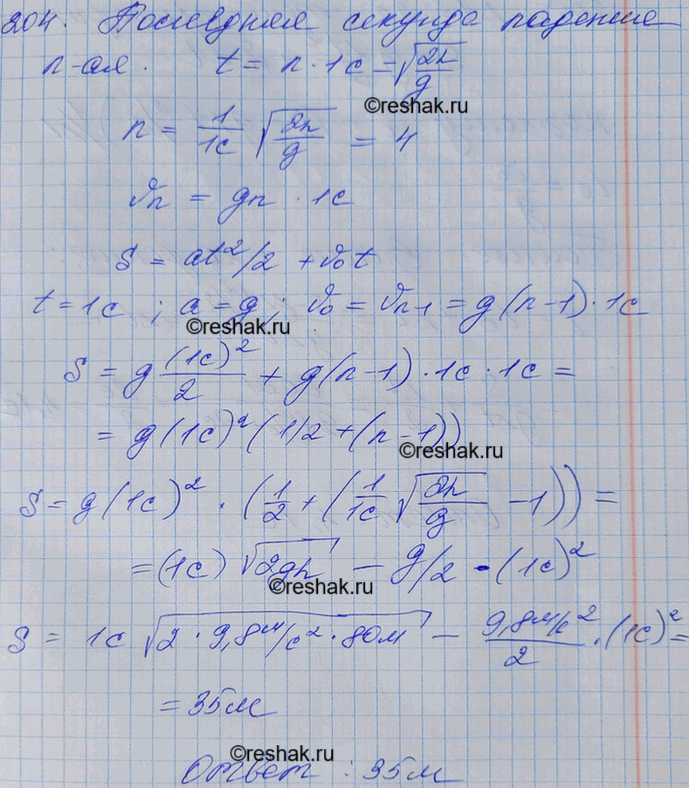 204. Последняя секунда падения
n-ая. t = n · 1с = √(2h/g)
©reshak.ru
n = 1/1с √(2h/g) = 4
vₙ = gn · 1с
S = at²/2 + v₀t
t = 1с ; a = g ; v₀ = vₙ₋₁ = g(n-1) · 1с
©reshak.ru
S = g (1с)²/2 + g(n-1) · 1с · 1с =
= g(1с)²(1/2 + (n-1))
©reshak.ru
S = g(1с)² · (1/2 + (1/1с √(2h/g) - 1)) =
= (1с) √(2gh) - g/2 · (1с)²
©reshak.ru
S = 1с √(2 · 9,8м/с² · 80м) - 9,8м/с²/2 · (1с)² =
= 35м
©reshak.ru
Ответ : 35м